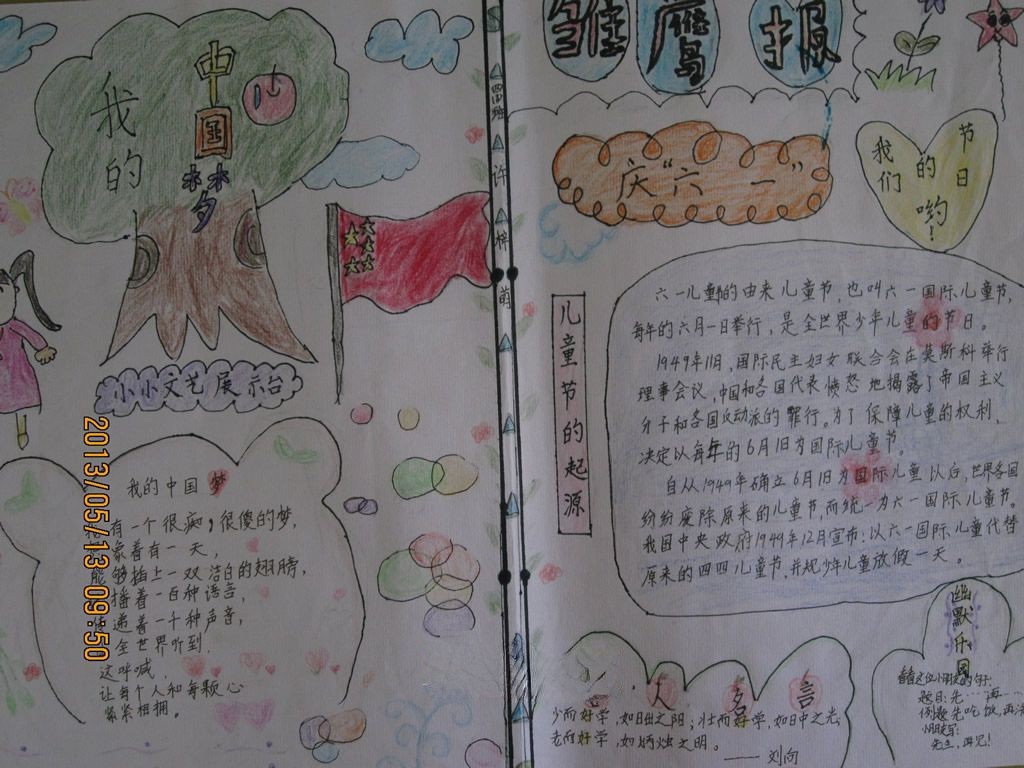 我的
中国梦
小小文艺展示台
我的中国梦
有一个很痴,很傻的梦,
着有一天,
能够插上一双洁白的翅膀,
播着一百种语言,
递着一千种声音,
全世界听到.
这呼喊,
让每个人和每颗心
紧紧相拥。
2013/05/13 09:50
许梓萌
雏鹰报
庆“六一”
我们的节日哟!
儿童节的起源
六一儿童节的由来儿童节,也叫六一国际儿童节,
每年的六月一日举行,是全世界少年儿童的节日。
1949年11月,国际民主妇女联合会在莫斯科举行
理事会议,中国和各国代表愤怒地揭露了帝国主义
分子和各国反动派的罪行。为了保障儿童的权利,
决定以每年的6月1日为国际儿童节。
自从1949年确立6月1日为国际儿童以后,世界各国
纷纷废除原来的儿童节,而统一为六一国际儿童节。
我国中央政府1949年12月宣布:以六一国际儿童代替
原来的四四儿童节,并规少年儿童放假一天。
人名言
少而好学,如日出之阳;壮而好学,如日中之光;
老而好学,如炳烛之明。
——刘向
幽默乐园
题目:先……再……
例题:先吃饭,再
先生,再见!